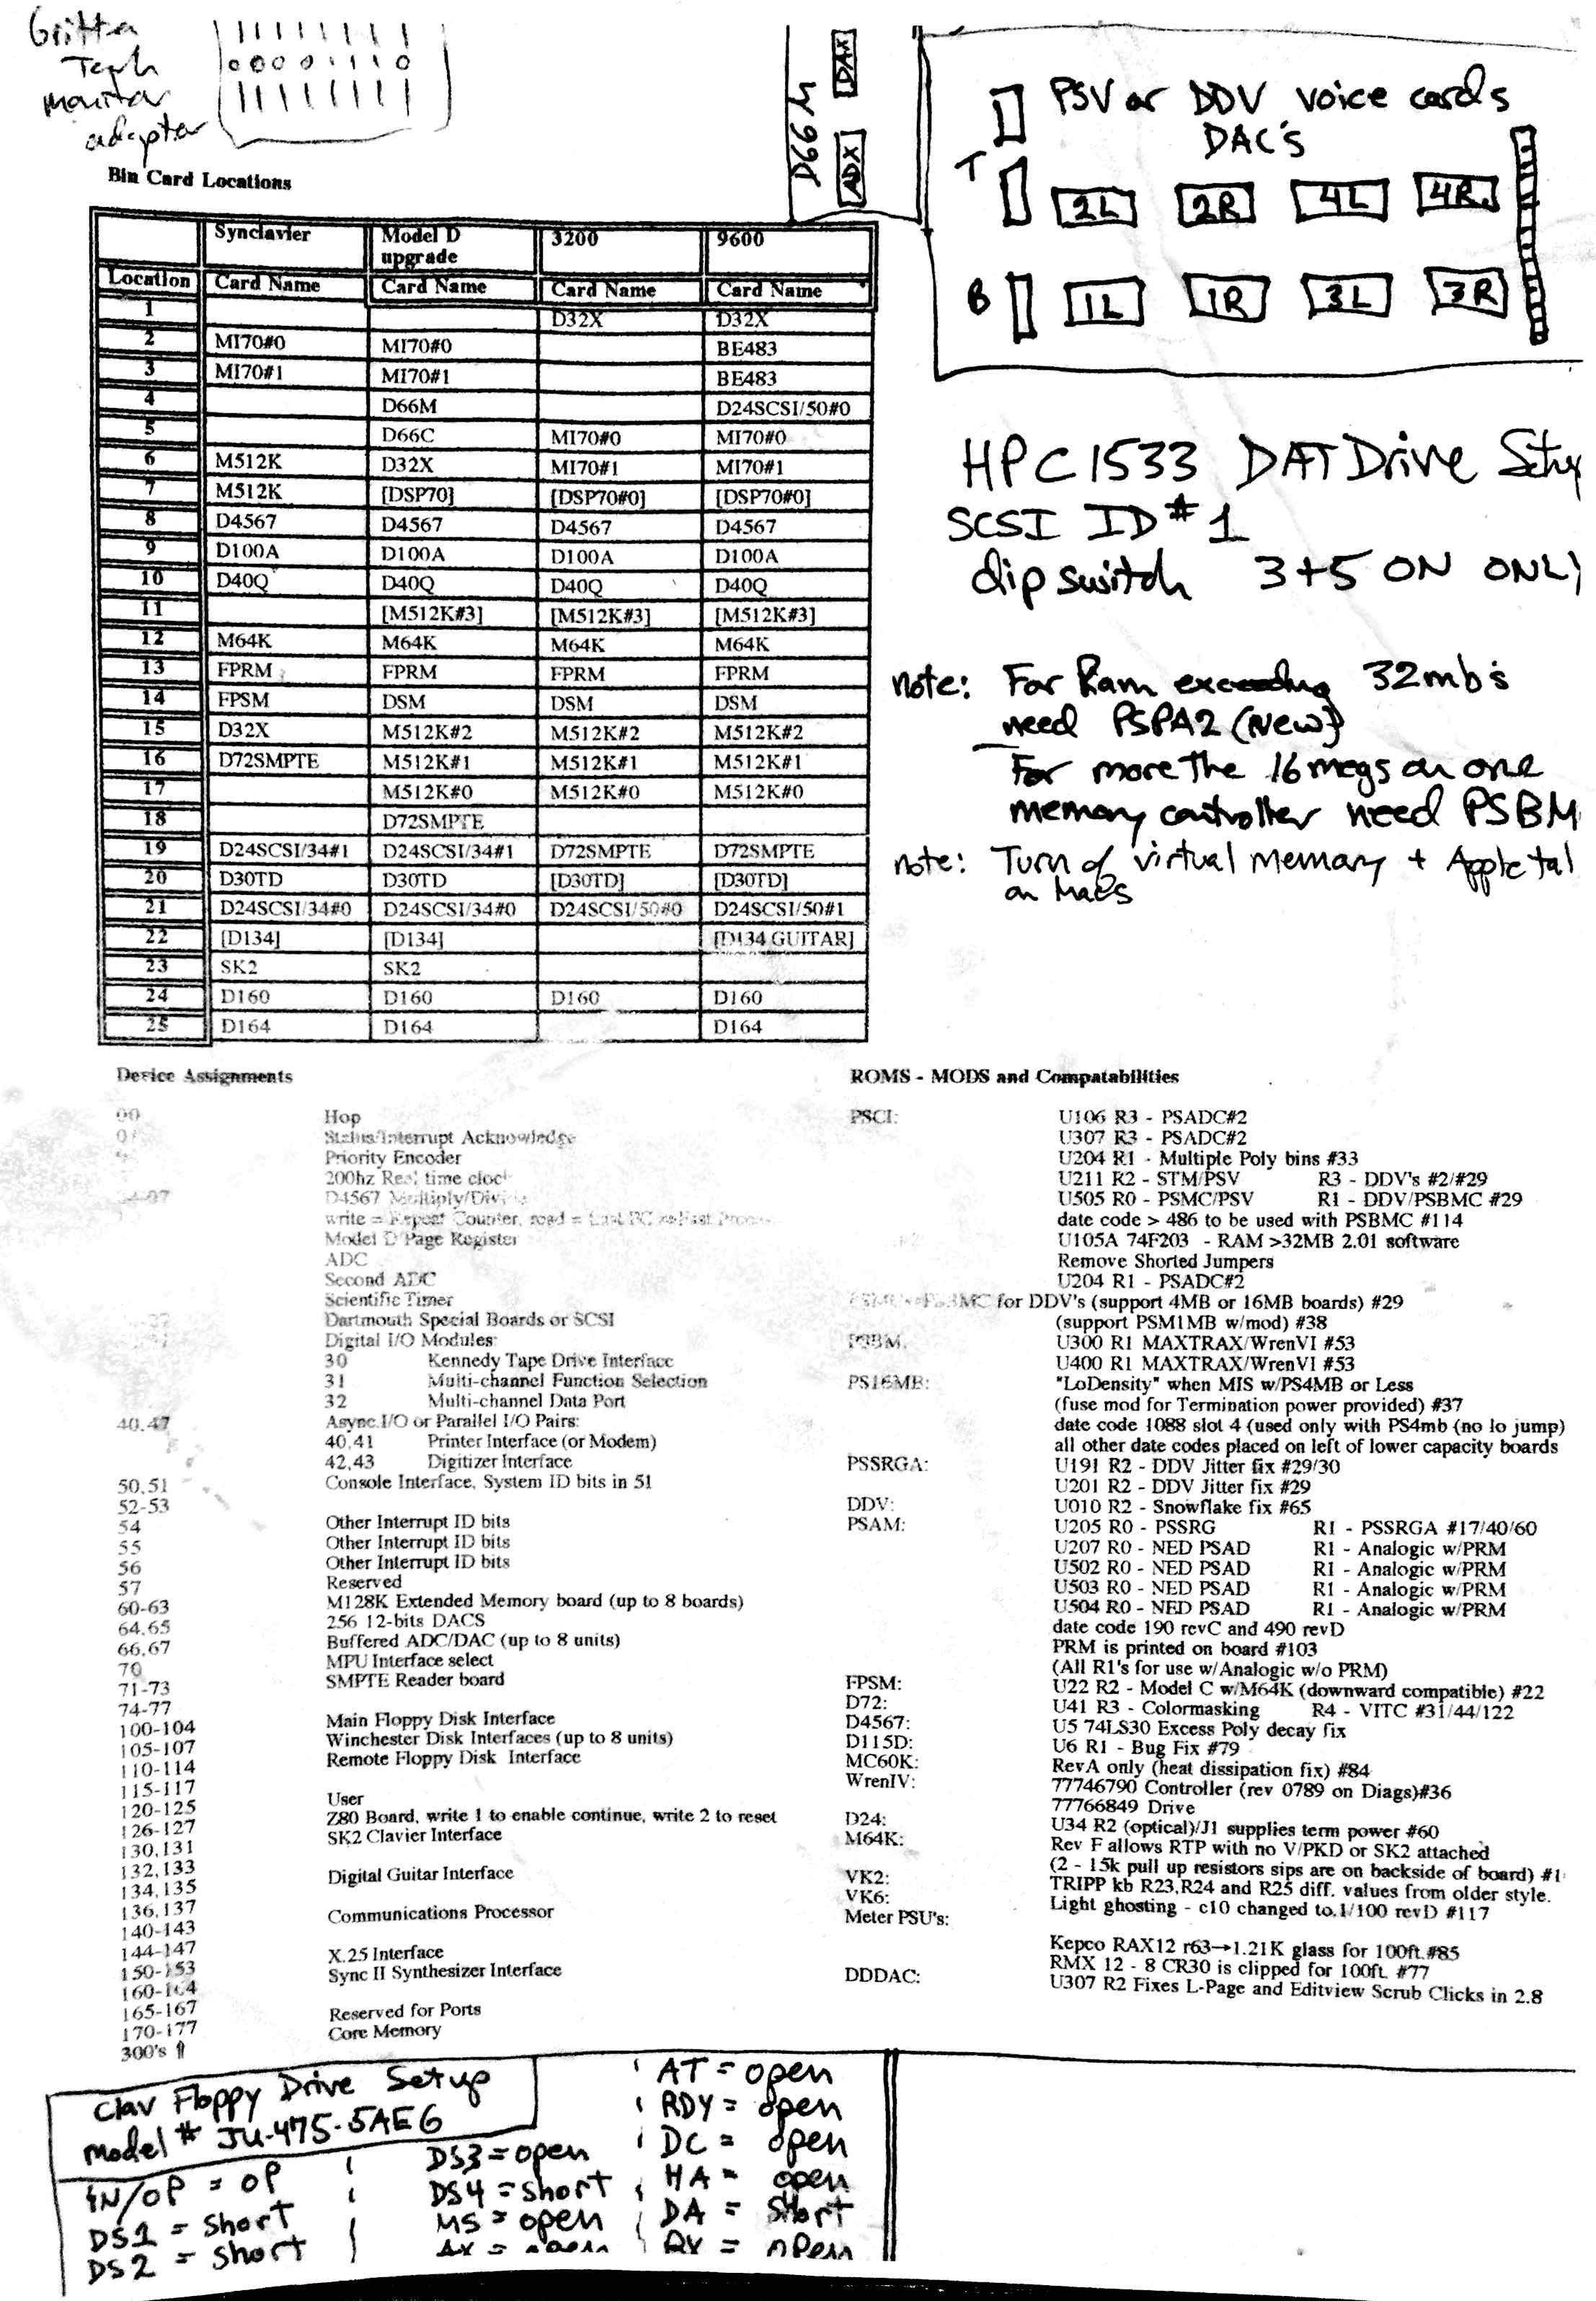 Gritta
Tech
monitor
adapter
1 1 1 1 1 1 1 1
0 0 0 0 1 1 1 0
1 1 1 1 1 1 1 1
D66M
ADX
DAX
PSV or DDV voice cards
DAC's
T
2L 2R 4L 4R
B
1L 1R 3L 3R
Bin Card Locations
Synclavier Model D upgrade 3200 9600
Location Card Name Card Name Card Name Card Name
1 D32X D32X
2 MI70#0 MI70#0 BE483
3 MI70#1 MI70#1 BE483
4 D66M D24SCSI/50#0
5 D66C MI70#0 MI70#0
6 M512K D32X MI70#1 MI70#1
7 M512K [DSP70] [DSP70#0] [DSP70#0]
8 D4567 D4567 D4567 D4567
9 D100A D100A D100A D100A
10 D40Q D40Q D40Q D40Q
11 [M512K#3] [M512K#3] [M512K#3]
12 M64K M64K M64K M64K
13 FPRM FPRM FPRM FPRM
14 FPSM DSM DSM DSM
15 D32X M512K#2 M512K#2 M512K#2
16 D72SMPTE M512K#1 M512K#1 M512K#1
17 M512K#0 M512K#0 M512K#0
18 D72SMPTE
19 D24SCSI/34#1 D24SCSI/34#1 D72SMPTE D72SMPTE
20 D30TD D30TD [D30TD] [D30TD]
21 D24SCSI/34#0 D24SCSI/34#0 D24SCSI/50#0 D24SCSI/50#1
22 [D134] [D134] [D134 GUITAR]
23 SK2 SK2
24 D160 D160 D160 D160
25 D164 D164 D164
HPC1533 DAT Drive
SCSI ID #1
dip switch 3+5 ON ONLY
note: For Ram exceeding 32mb's
need PSPA2 (New)
For more the 16 megs on one
memory controller need PSBM
note: Turn of virtual memory + Apple tal
on Macs
Device Assignments
00 Hop
Status/Interrupt Acknowledge
Priority Encoder
200hz Real time clock
D4567 Multiply/Divide
write = Repeat Counter, read =
Model D Page Register
ADC
Second ADC
Scientific Timer
Dartmouth Special Boards or SCSI
Digital I/O Modules:
30 Kennedy Tape Drive Interface
31 Multi-channel Function Selection
32 Multi-channel Data Port
40,47 Async I/O or Parallel I/O Pairs:
40,41 Printer Interface (or Modem)
42,43 Digitizer Interface
50,51 Console Interface, System ID bits in 51
52-53
54 Other Interrupt ID bits
55 Other Interrupt ID bits
56 Other Interrupt ID bits
57 Reserved
60-63 M128K Extended Memory board (up to 8 boards)
64,65 256 12-bits DACS
66,67 Buffered ADC/DAC (up to 8 units)
70 MPU Interface select
71-73 SMPTE Reader board
74-77
100-104 Main Floppy Disk Interface
105-107 Winchester Disk Interfaces (up to 8 units)
110-114 Remote Floppy Disk Interface
115-117
120-125 User
126-127 Z80 Board, write 1 to enable continue, write 2 to reset
130,131 SK2 Clavier Interface
132,133
134,135 Digital Guitar Interface
136,137
140-143 Communications Processor
144-147
150-153 X.25 Interface
160-164 Sync II Synthesizer Interface
165-167
170-177 Reserved for Ports
300's ⇑ Core Memory
ROMS - MODS and Compatabilities
PSCI: U106 R3 - PSADC#2
U307 R3 - PSADC#2
U204 R1 - Multiple Poly bins #33
U211 R2 - STM/PSV R3 - DDV's #2/#29
U505 R0 - PSMC/PSV R1 - DDV/PSBMC #29
date code > 486 to be used with PSBMC #114
U105A 74F203 - RAM >32MB 2.01 software
Remove Shorted Jumpers
U204 R1 - PSADC#2
for DDV's (support 4MB or 16MB boards) #29
(support PSM1MB w/mod) #38
PSBM: U300 R1 MAXTRAX/WrenVI #53
U400 R1 MAXTRAX/WrenVI #53
PS16MB: "LoDensity" when MIS w/PS4MB or Less
(fuse mod for Termination power provided) #37
date code 1088 slot 4 (used only with PS4mb (no lo jump)
all other date codes placed on left of lower capacity boards
PSSRGA: U191 R2 - DDV Jitter fix #29/30
U201 R2 - DDV Jitter fix #29
DDV: U010 R2 - Snowflake fix #65
PSAM: U205 R0 - PSSRG R1 - PSSRGA #17/40/60
U207 R0 - NED PSAD R1 - Analogic w/PRM
U502 R0 - NED PSAD R1 - Analogic w/PRM
U503 R0 - NED PSAD R1 - Analogic w/PRM
U504 R0 - NED PSAD R1 - Analogic w/PRM
date code 190 revC and 490 revD
PRM is printed on board #103
(All R1's for use w/Analogic w/o PRM)
FPSM: U22 R2 - Model C w/M64K (downward compatible) #22
D72: U41 R3 - Colormasking R4 - VITC #31/44/122
D4567: U5 74LS30 Excess Poly decay fix
D115D: U6 R1 - Bug Fix #79
MC60K: RevA only (heat dissipation fix) #84
WrenIV: 77746790 Controller (rev 0789 on Diags)#36
77766849 Drive
D24: U34 R2 (optical)/J1 supplies term power #60
M64K: Rev F allows RTP with no V/PKD or SK2 attached
(2 - 15k pull up resistors sips are on backside of board) #1
VK2: TRIPP kb R23,R24 and R25 diff. values from older style.
VK6: Light ghosting - c10 changed to.1/100 revD #117
Meter PSU's:
Kepco RAX12 r63→1.21K glass for 100ft.#85
RMX 12 - 8 CR30 is clipped for 100ft. #77
DDDAC: U307 R2 Fixes L-Page and Editview Scrub Clicks in 2.8
Clav Floppy Drive Setup
model # JU-475-5AEG
IN/OP = OP
DS1 = Short
DS2 = Short
DS3 = open
DS4 = short
MS = open
AX = open
AT = open
RDY = open
DC = open
HA = open
DA = Short
RV = open